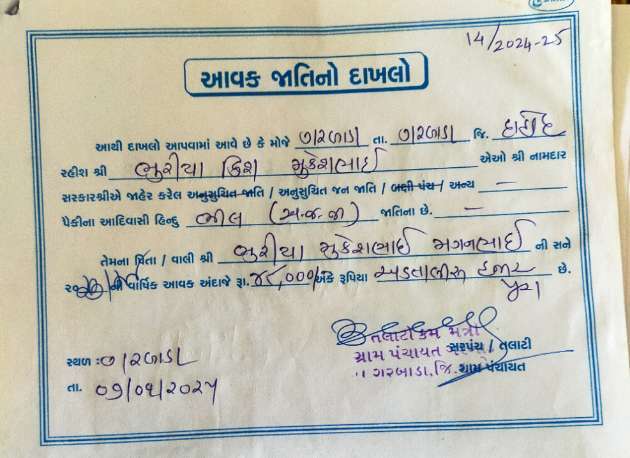 14/2024-25
આવક જાતિનો દાખલો
આથી દાખલો આપવામાં આવે છે કે મોજે ગરબાડા તા. ગરબાડા જિ. દાહોદ
રહીશ શ્રી ભુરીયા ક્રિશ મુકેશભાઈ એઓ શ્રી નામદાર
સરકારશ્રીએ જાહેર કરેલ અનુસુચિત જાતિ / અનુસુચિત જન જાતિ / બક્ષી પંચ / અન્ય —
પૈકીના આદિવાસી હિન્દુ ભીલ (અ.જ.જા) જાતિના છે. —
તેમના પિતા / વાલી શ્રી ભુરીયા મુકેશભાઈ મગનભાઈ ની સને
ની વાર્ષિક આવક અંદાજે રૂા. ૪૮,૦૦૦/- અંકે રૂપિયા અડતાલીસ હજાર પુરા છે.
તલાટી કમ મંત્રી
ગ્રામ પંચાયત સરપંચ / તલાટી
ગરબાડા, જિ. ગ્રામ પંચાયત
સ્થળ : ગરબાડા
તા.